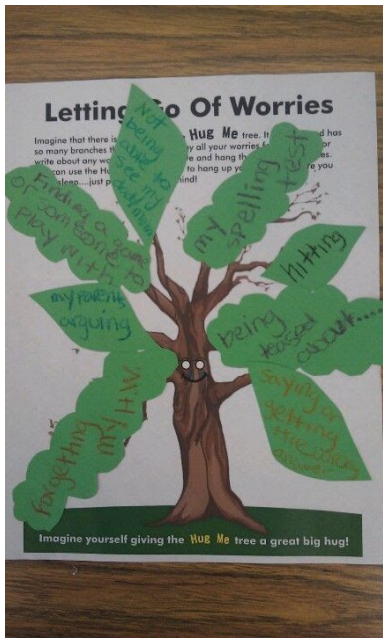 Letting Go Of Worries
Imagine that there is Hug Me tree. It d has
so many branches y all your worries or
write about any wo e and hang th es.
can use the Hu to hang up yo re you
sleep...just p ind!
Not
being
able to
see my
my
spelling
test
Finding a game
or someone to
play with
hitting
my parent
arguing
being
teased
about....
Forgetting
my H.W.
saying or
getting
the wrong
answer
Imagine yourself giving the Hug Me tree a great big hug!